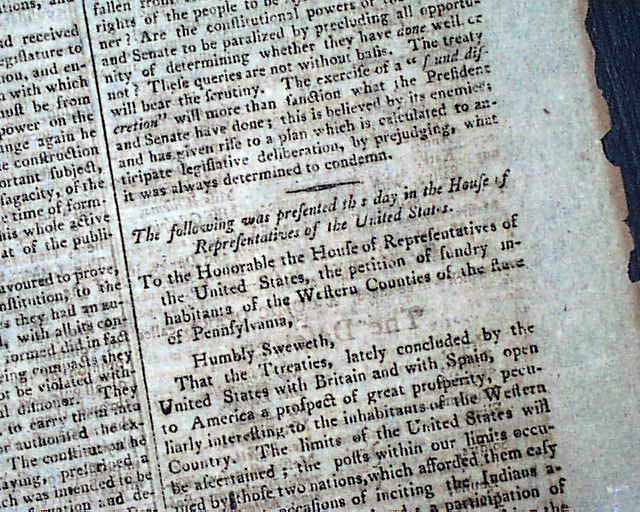 tions, and
ad received
egislature to
ion, and en-
n with which
must be from
power on the
nge again he
e construction
ortant subject,
sagacity, of the
e time of form-
his whole active
at of the publi-
avoured to prove,
nstitution, to the
s they had an au-
l, with all its con-
formed did in fact
ing compacts they
ot be violated with-
They
to carry them into
or authorised the ex-
The constitution he
aying, prescribed a
ch was intended to be
and de-
fallen from
rights of the people to be
ner? Are the conſtitutional powers of the
and Senate to be paralized by precluding all opportu-
nity of determining whether they have done well or
not? Theſe queries are not without baſis. The treaty
will bear the ſcrutiny. The exerciſe of a "ſound diſ-
cretion" will more than ſanction what the Preſident
and Senate have done; this is believed by its enemies;
and has given riſe to a plan which is calculated to an-
tiripate legiſlative deliberation, by prejudging, what
it was always determined to condemn.
The following was preſented this day in the Houſe of
Repreſentatives of the United States.
To the Honorable the Houſe of Repreſentatives of
the United States, the petition of ſundry in-
habitants of the Weſtern Counties of the ſtate
of Pennſylvania,
Humbly Sweweth,
That the Treaties, lately concluded by the
United States with Britain and with Spain, open
to America a proſpect of great proſperity, pecu-
liarly intereſting to the inhabitants of the Weſtern
Country. The limits of the United States will
be aſcertained; the poſts within our limits occu-
pied by thoſe two nations, which afforded them eaſy
occaſions of inciting the Indians a-
a participation of
the